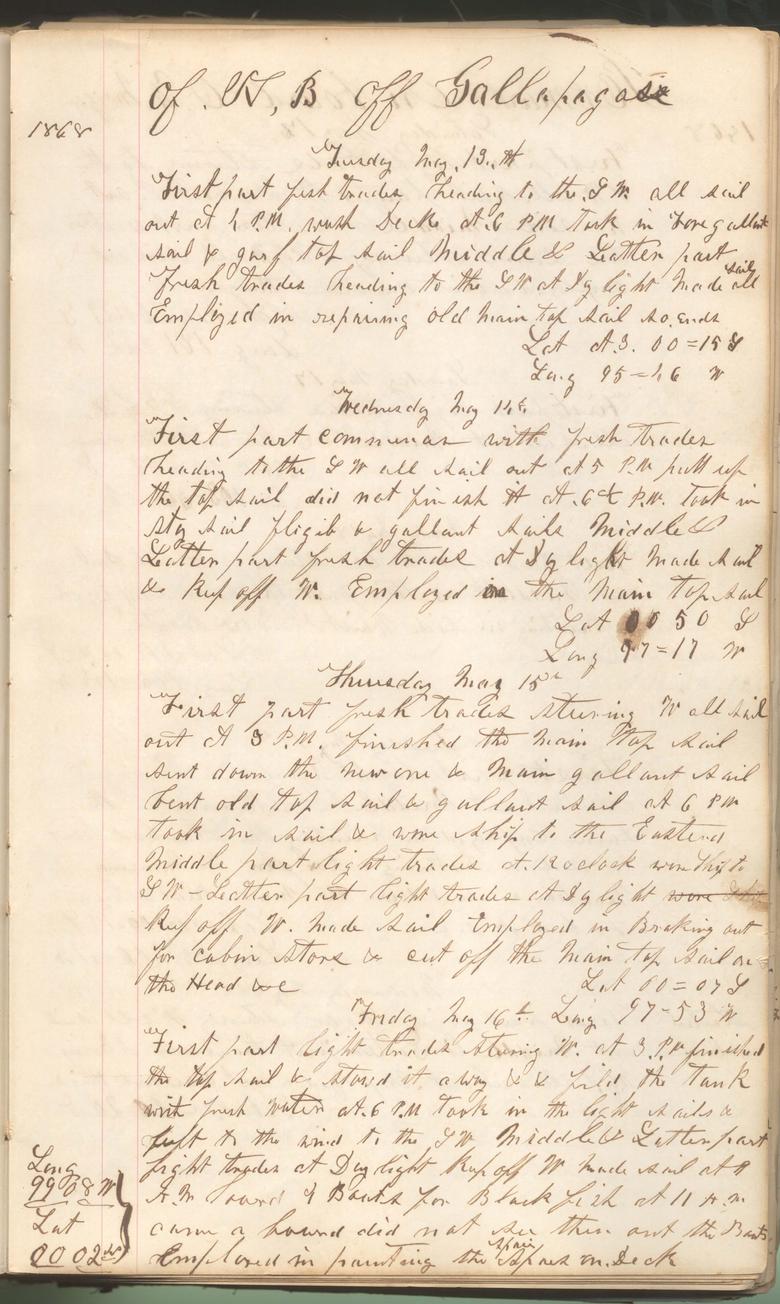 of N, B off Gallapagose
1868
Tuesday May 13th
First part fresh trades heading to the S W. all sail
out at 4 P.M. wash Decks at 6 P M took in Foregallant
sail & gaff top sail Middle & Latter part
Fresh trades heading to the S W at Dy light Made all sail
Employed in repairing old Main top sail so ends
Lat at 3. 00=15 S
Long 95=46 W
Wednesday May 14th
First part commences with fresh trades
heading to the S W all sail out at 5 P.M pull up
the top sail did not finish it at 6 P.M. took in
stay sail fligib & gallant sails Middle &
Latter part fresh trades at Dy light Made sail
& Kep off W. Employed in the Main top sail
Lat 00 50 S
Long 97=17 W
Thursday May 15th
First part fresh trades steering W all sail
out at 3 P.M. finished the Main top sail
sent down the new one & Main gallant sail
bent old top sail & gallant sail at 6 PM
took in sail & wore ship to the Easterd
Middle part light trades at 12 oclock wore ship to
S W - Latter part light trades at Dy light wore Ship
Kep off W. Made sail Employed in Braking out
for cabin stors & cut off the Main top sail on
the Head &c
Lat 00=07 S
Friday May 16th Long 97-53 W
First part light trades steering W. at 3 P.M finished
the top sail & stowd it away & & fild the tank
with fresh water at 6 P.M took in the light sails &
luft to the wind to the S W Middle & Latter part
light trades at Day light Kep off W Made sail at 9
A.M lowrd 4 Boats for Blackfish at 11 A.M
came a bourd did not see them out the Boats
Employed in painting the spair Spars on Deck
Long
99 08 W
Lat
00 02